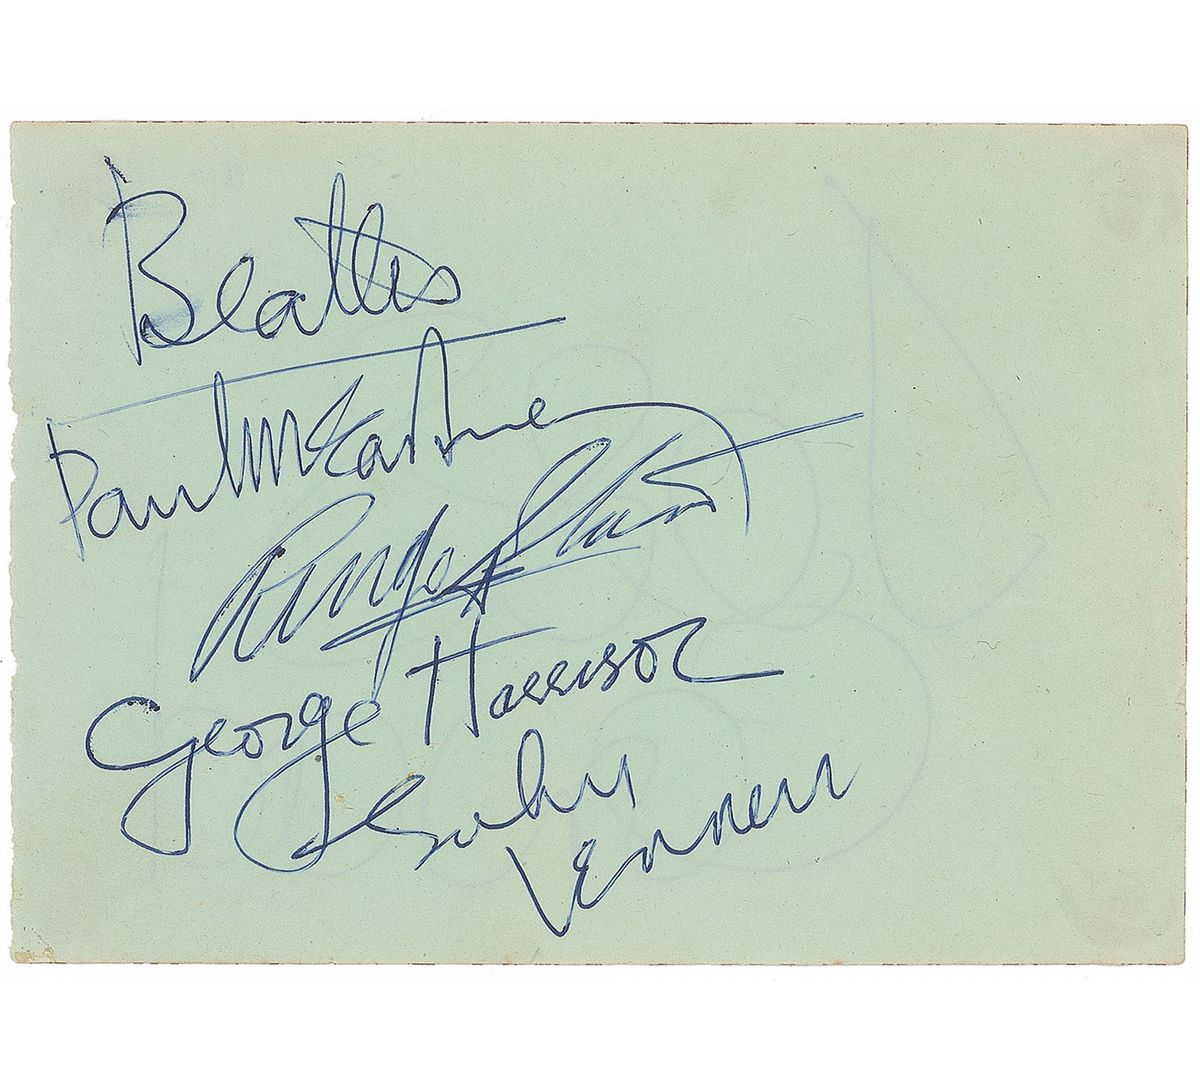 Beatles
Paul McCartney
Ringo Starr
George Harrison
John Lennon